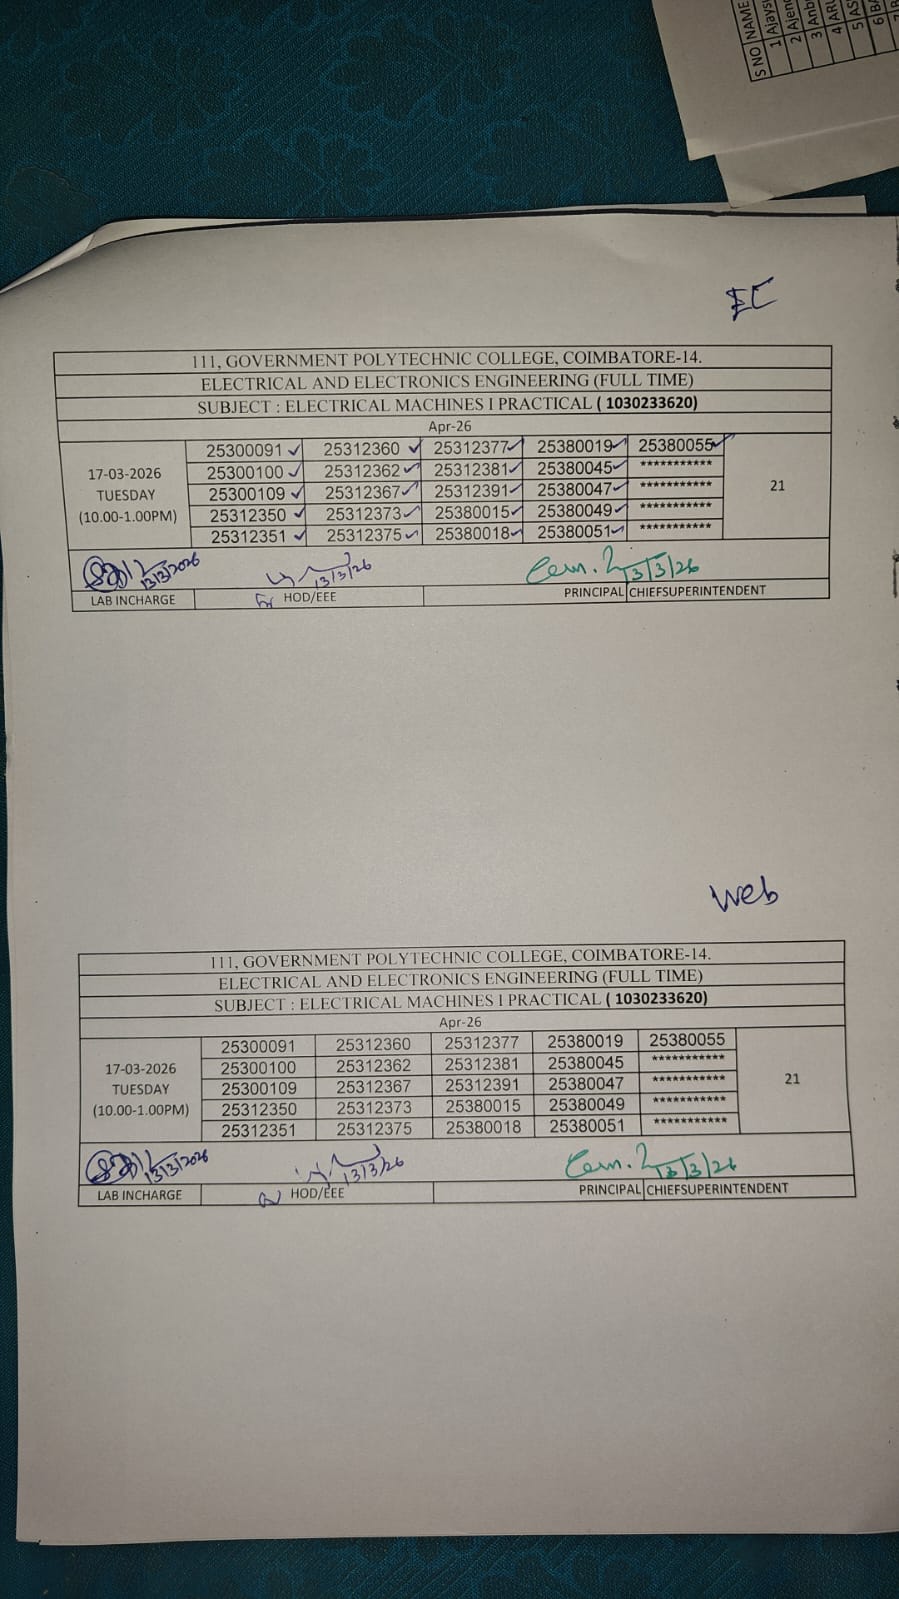 S NO NAME
1 Ajays
2 Ajend
3 Anb
4 AR
5 AS
6 BA
EC
111, GOVERNMENT POLYTECHNIC COLLEGE, COIMBATORE-14.
ELECTRICAL AND ELECTRONICS ENGINEERING (FULL TIME)
SUBJECT : ELECTRICAL MACHINES I PRACTICAL ( 1030233620)
Apr-26
25300091 ✓ 25312360 ✓ 25312377 ✓ 25380019 ✓ 25380055 ✓
17-03-2026 25300100 ✓ 25312362 ✓ 25312381 ✓ 25380045 ✓ ***********
TUESDAY 25300109 ✓ 25312367 ✓ 25312391 ✓ 25380047 ✓ *********** 21
(10.00-1.00PM) 25312350 ✓ 25312373 ✓ 25380015 ✓ 25380049 ✓ ***********
25312351 ✓ 25312375 ✓ 25380018 ✓ 25380051 ✓ ***********
13/3/2026 13/3/26 13/3/26
LAB INCHARGE HOD/EEE PRINCIPAL CHIEFSUPERINTENDENT
Web
111, GOVERNMENT POLYTECHNIC COLLEGE, COIMBATORE-14.
ELECTRICAL AND ELECTRONICS ENGINEERING (FULL TIME)
SUBJECT : ELECTRICAL MACHINES I PRACTICAL ( 1030233620)
Apr-26
25300091 25312360 25312377 25380019 25380055
17-03-2026 25300100 25312362 25312381 25380045 ***********
TUESDAY 25300109 25312367 25312391 25380047 *********** 21
(10.00-1.00PM) 25312350 25312373 25380015 25380049 ***********
25312351 25312375 25380018 25380051 ***********
13/3/2026 13/3/26 13/3/26
LAB INCHARGE HOD/EEE PRINCIPAL CHIEFSUPERINTENDENT